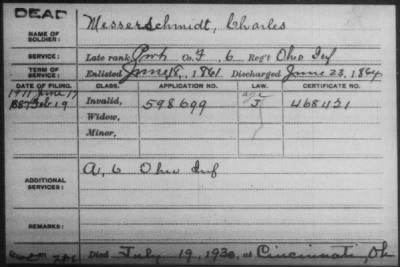 DEAD
NAME OF SOLDIER: Messerschmidt, Charles
SERVICE: Late rank Pvt. Co. F, 6 Reg't Ohio Inf
TERM OF SERVICE: Enlisted June 18, 1861. Discharged June 23, 1864
DATE OF FILING. CLASS. APPLICATION NO. LAW. CERTIFICATE NO.
1911 June 17
1887 Feb 19 Invalid, 598699 J 468421
Widow,
Minor,
ADDITIONAL SERVICES: A, 6 Ohio Inf
REMARKS:
Died July 19, 1930, at Cincinnati, Oh